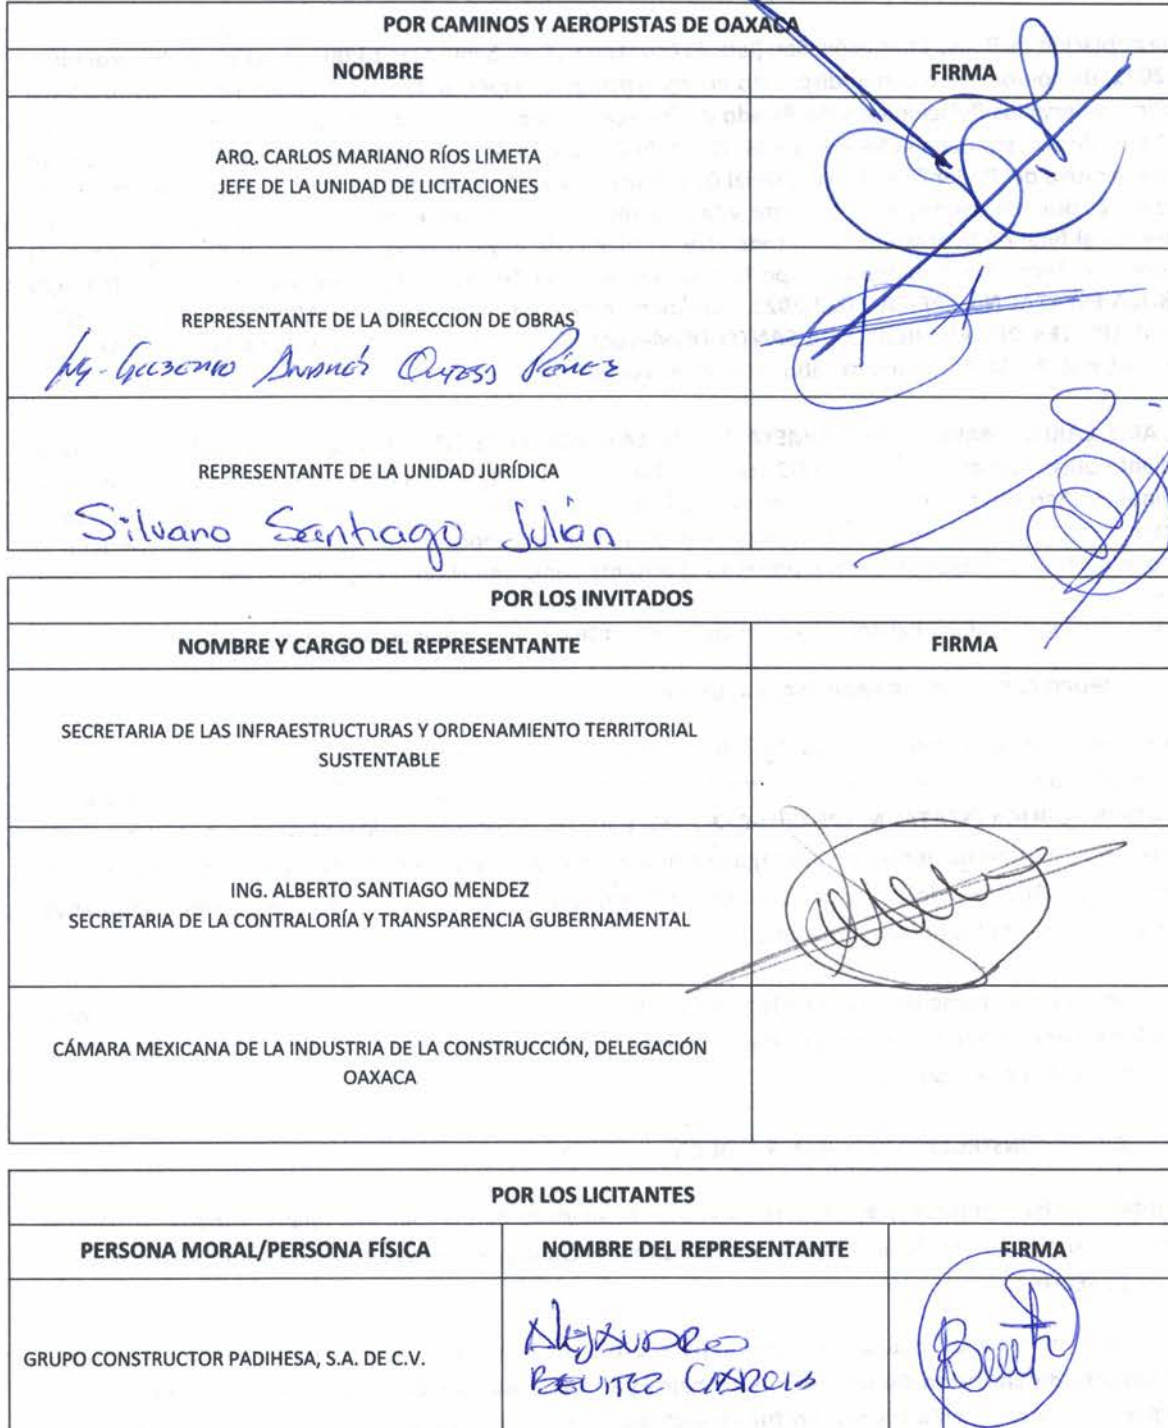 POR CAMINOS Y AEROPISTAS DE OAXACA
NOMBRE FIRMA
ARQ. CARLOS MARIANO RÍOS LIMETA
JEFE DE LA UNIDAD DE LICITACIONES
REPRESENTANTE DE LA DIRECCION DE OBRAS
REPRESENTANTE DE LA UNIDAD JURÍDICA
Silvano Santiago Julián
POR LOS INVITADOS
NOMBRE Y CARGO DEL REPRESENTANTE FIRMA
SECRETARIA DE LAS INFRAESTRUCTURAS Y ORDENAMIENTO TERRITORIAL
SUSTENTABLE
ING. ALBERTO SANTIAGO MENDEZ
SECRETARIA DE LA CONTRALORÍA Y TRANSPARENCIA GUBERNAMENTAL
CÁMARA MEXICANA DE LA INDUSTRIA DE LA CONSTRUCCIÓN, DELEGACIÓN
OAXACA
POR LOS LICITANTES
PERSONA MORAL/PERSONA FÍSICA NOMBRE DEL REPRESENTANTE FIRMA
GRUPO CONSTRUCTOR PADIHESA, S.A. DE C.V.
ALEJANDRO
BENITEZ